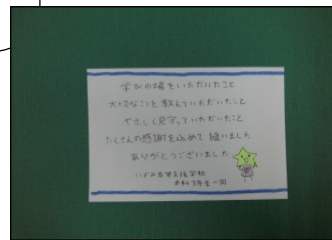 学びの場をいただいたこと
大切なことを教えていただいたこと
やさしく見守っていただいたこと
たくさんの感謝を込めて縫いました
ありがとうございました
支援学校
本科3年生一同